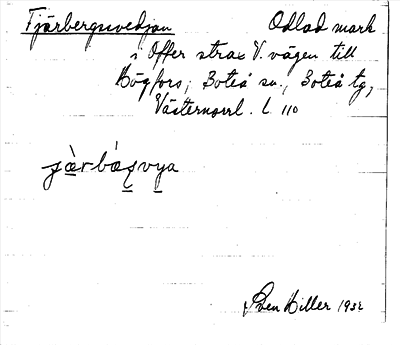 Fjärbergssvedjan Odlad mark
i Offer strax V. vägen till
Högfors, Boteå sn., Boteå tg,
Västernorrl. l. 110
jàrbásvya
Sven Hiller 1932